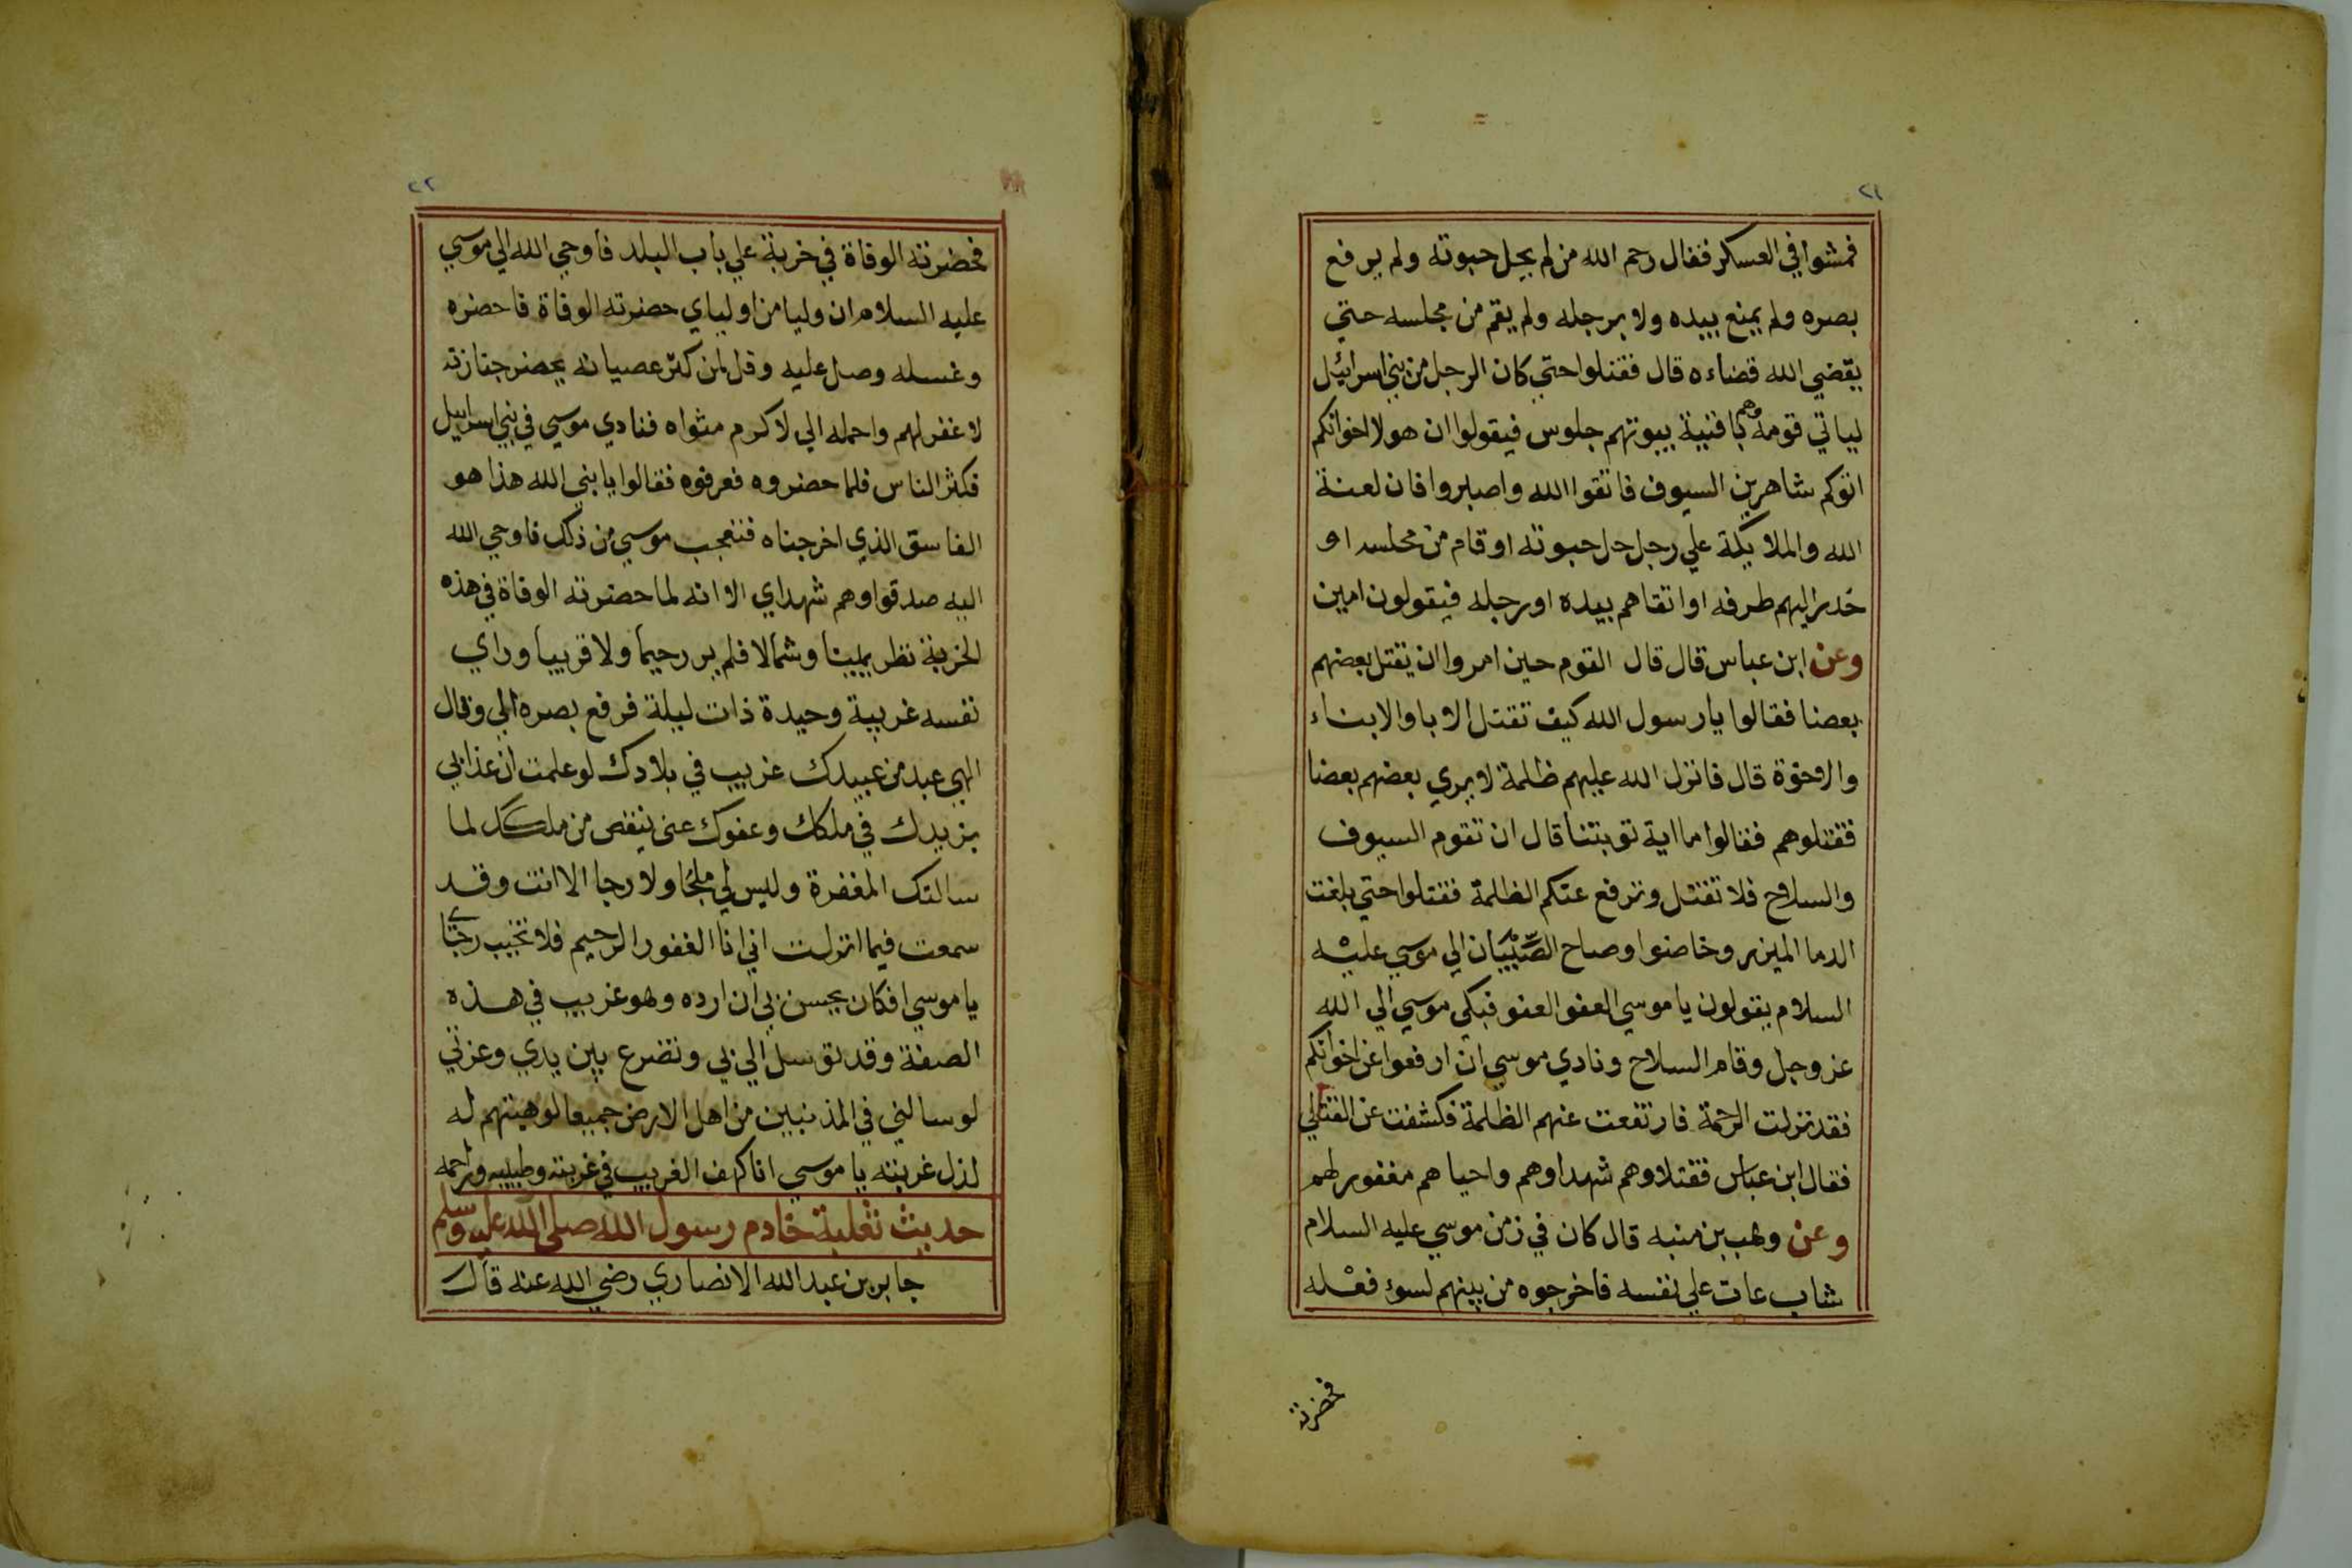 ٢١
فمشوا في العسكر فقال رحم الله من لم يحل حبوته ولم يرفع
بصره ولم يمنع بيده ولا برجله ولم يقم من مجلسه حتي
يقضي الله قضاءه قال فقتلوا حتي كان الرجل من بني اسرائيل
لياتي قومه وهم بافنية بيوتهم جلوس فيقولوا ان هولا اخوانكم
اتوكم شاهرين السيوف فاتقوا الله واصبروا فان لعنة
الله والملايكة علي رجل حل حبوته او قام من مجلسه او
حدر اليهم طرفه او اتقاهم بيده او رجله فيقولون امين
وعن ابن عباس قال قال القوم حين امروا ان يقتل بعضهم
بعضنا فقالوا يا رسول الله كيف تقتل الابا والابناء
والاخوة قال فانزل الله عليهم ظلمة لا يري بعضهم بعضا
فقتلوهم فقالوا ما اية توبتنا قال ان تقوم السيوف
والسلاح فلا تقتل وترفع عنكم الظلمة فقتلوا حتي بلغت
الدما الميزر وخاضوا وصاح الصّبْيان الي موسي عليْه
السلام يقولون يا موسي العفو العفو فبكي موسي الي الله
عز وجل وقام السلاح ونادي موسي ان ارفعوا عن اخوانكم
فقد نزلت الرحمة فارتفعت عنهم الظلمة فكشفت عن القتلي
فقال ابن عباس فقتلاوهم شهداوهم واحياهم مغفور لهم
وعن وهب بن منبه قال كان في زمن موسي عليه السلام
شاب عات علي نفسه فاخرجوه من بينهم لسوء فعْله
فحضرته
٢٢
فحضرته الوفاة في خربة علي باب البلد فاوحي الله الي موسي
عليه السلام ان وليا من اولياي حضرته الوفاة فاحضره
وغسله وصل عليه وقل لمن كثر عصيانه يحضر جنازته
لاغفر لهم واحمله الي لاكرم مثواه فنادي موسي في بني اسراييل
فكثر الناس فلما حضروه فعرفوه فقالوا يا نبي الله هذا هو
الفاسق الذي اخرجناه فتعجب موسي من ذلك فاوحي الله
اليه صدقوا وهم شهداي الا انه لما حضرته الوفاة في هذه
الخربة نظر يمينا وشمالا فلم ير رحيما ولا قريبا وراي
نفسه غريبة وحيدة ذليلة فرفع بصره الي وقال
الهي عبد من عبيدك غريب في بلادك لو علمت ان عذابي
يزيدك في ملكك وعفوك عني ينقص من ملكك لما
سالتك المغفرة وليس لي ملجا ولا رجا الا انت وقد
سمعت فيما انزلت اني انا الغفور الرحيم فلا تخيب رجاي
يا موسي افكان يحسن بي ان ارده وهو غريب في هذه
الصفة وقد توسل الي بي وتضرع بين يدي وعزتي
لو سالني في المذنبين من اهل الارض جميعا لوهبتهم له
لذل غربته يا موسي انا كهف الغريب في غربته وطبيبه وراحمه
حديث ثعلبة خادم رسول الله صلى الله عليه وسلم
جابر بن عبد الله الانصاري رضي الله عنه قال